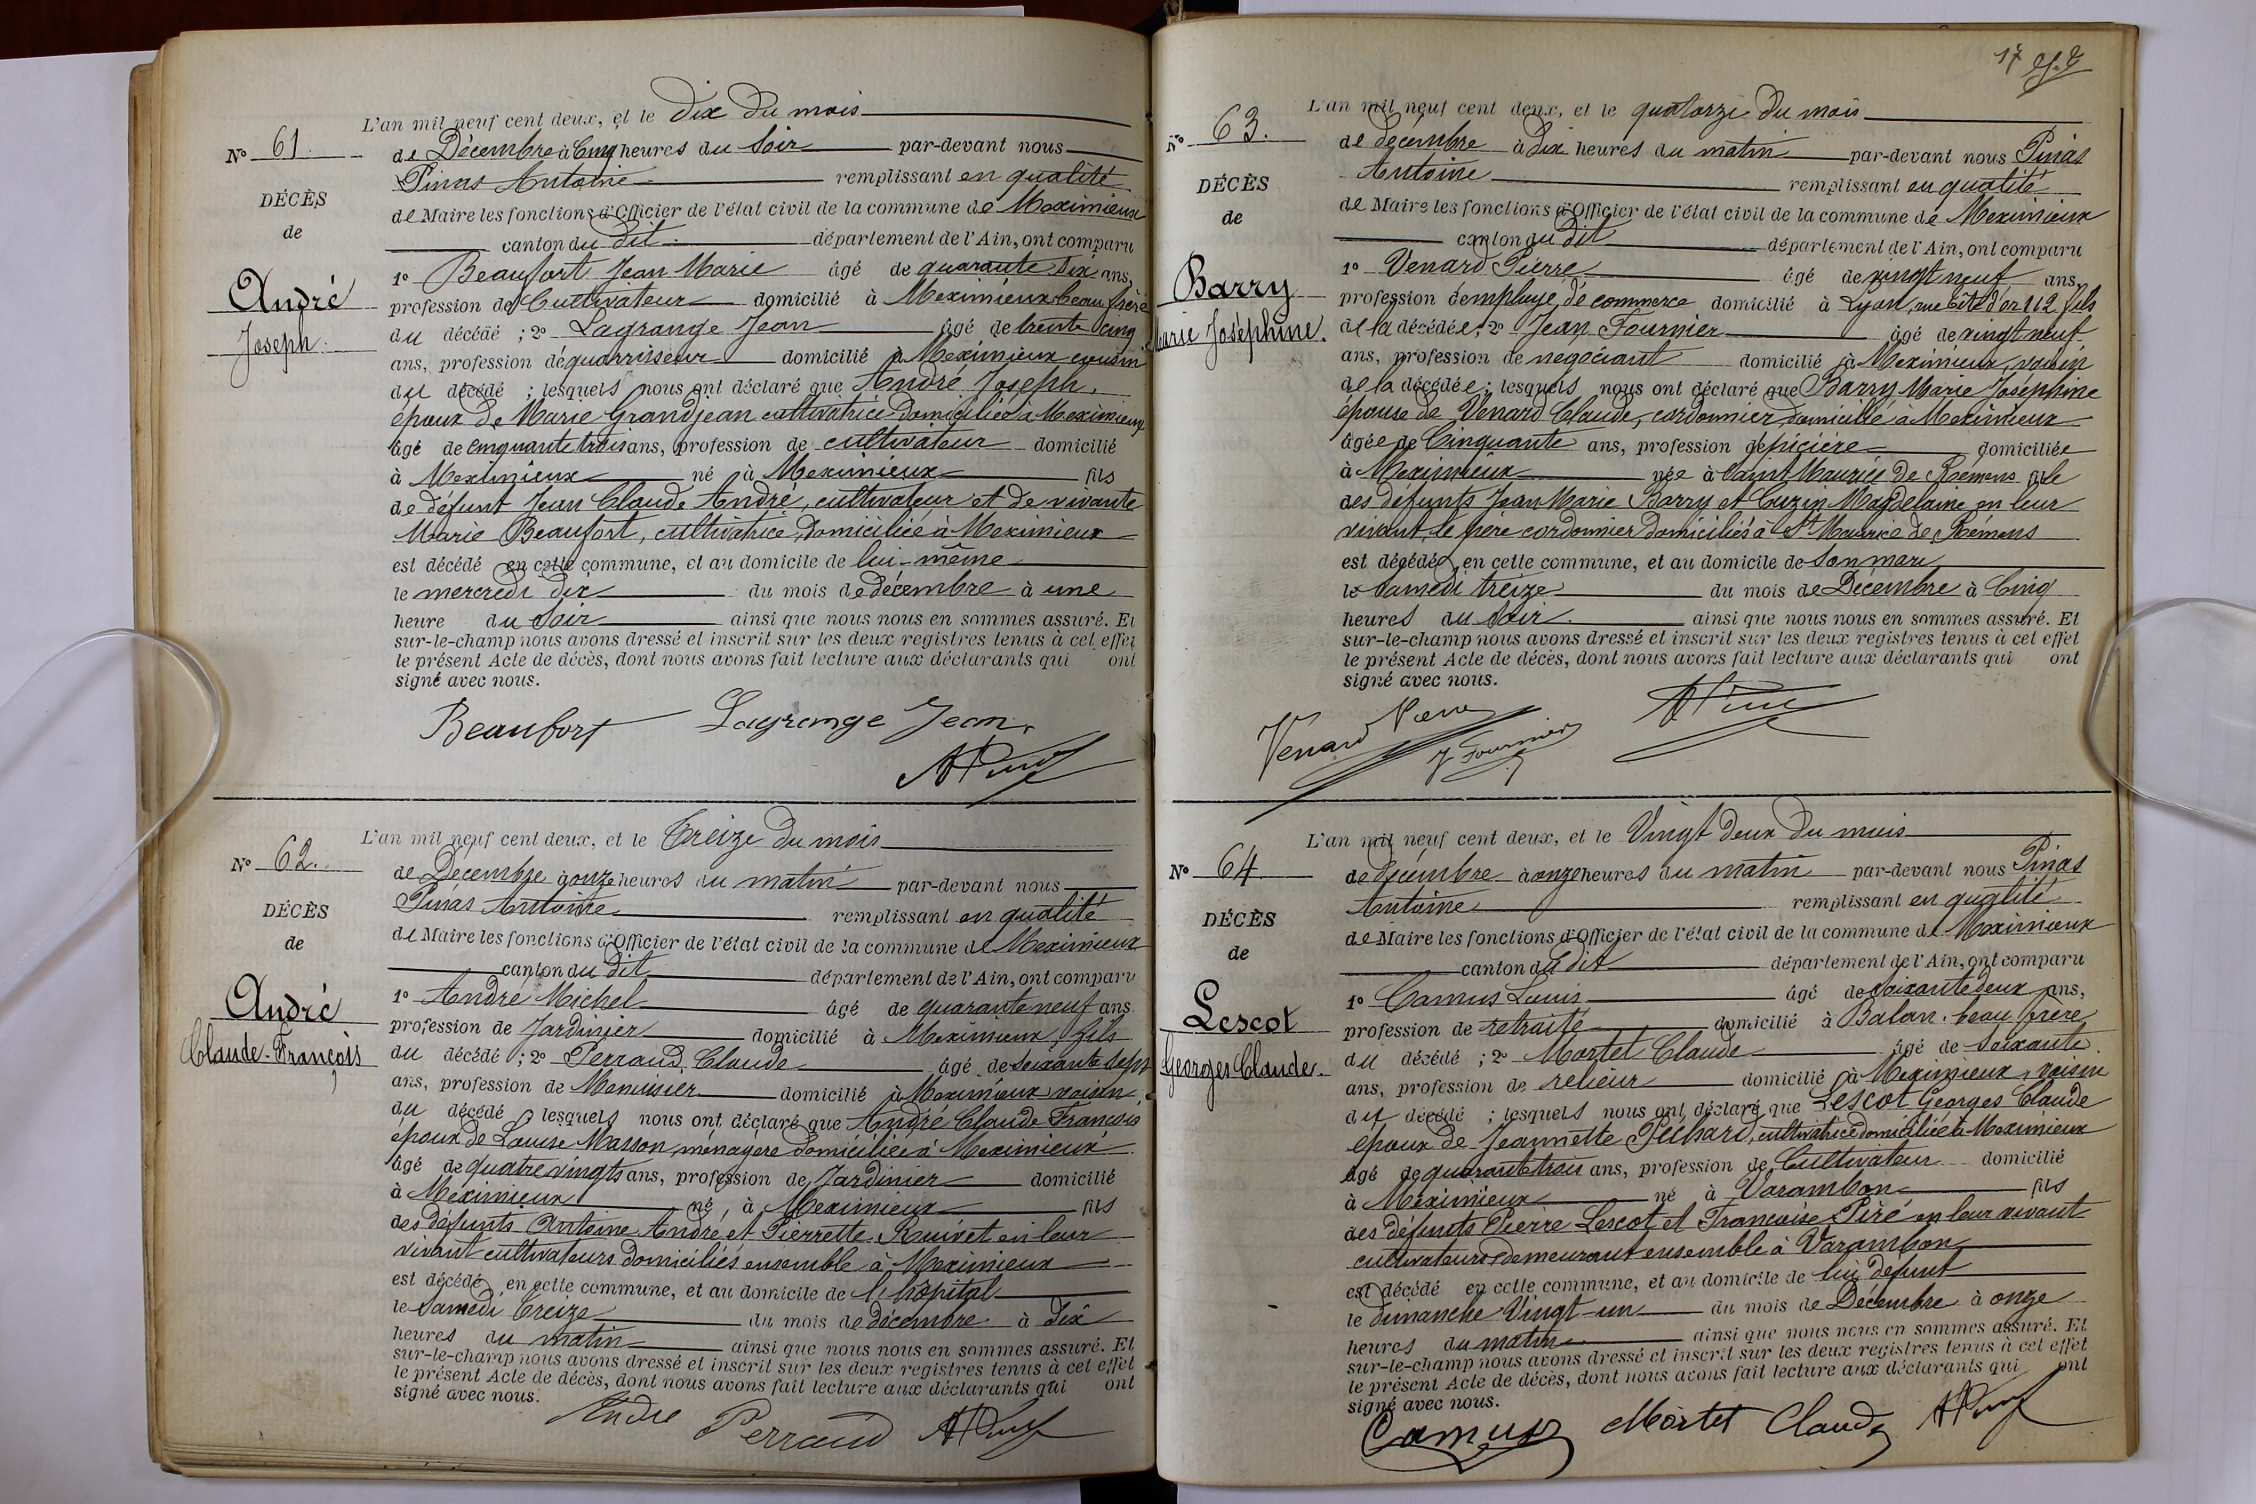 L'an mil neuf cent deux, et le Dix du mois
No 61.
de Décembre à Cinq heures du Soir par-devant nous
Pinas Antoine remplissant en qualité
DÉCÈS
de Maire les fonctions d'Officier de l'état civil de la commune de Meximieux
de
canton du dit département de l'Ain, ont comparu
1o Beaufort Jean Marie âgé de quarante six ans,
André
profession de Cultivateur domicilié à Meximieux beau frère
Joseph.
du décédé ; 2o Lagrange Jean âgé de trente cinq
ans, profession d'équarrisseur domicilié à Meximieux cousin
du décédé ; lesquels nous ont déclaré que André Joseph,
époux de Marie Grandjean cultivatrice domiciliée à Meximieux
âgé de cinquante trois ans, profession de cultivateur domicilié
à Meximieux né à Meximieux fils
de défunt Jean Claude André, cultivateur et de vivante
Marie Beaufort, cultivatrice, domiciliée à Meximieux
est décédé en cette commune, et au domicile de lui-même
le mercredi dix du mois de décembre à une
heure du Soir ainsi que nous nous en sommes assuré. Et
sur-le-champ nous avons dressé et inscrit sur les deux registres tenus à cet effet
le présent Acte de décès, dont nous avons fait lecture aux déclarants qui ont
signé avec nous.
Beaufort Lagrange Jean
L'an mil neuf cent deux, et le Treize du mois
No 62.
de Décembre à onze heures du matin par-devant nous
Pinas Antoine remplissant en qualité
DÉCÈS
de Maire les fonctions d'Officier de l'état civil de la commune de Meximieux
de
canton du dit département de l'Ain, ont comparu
1o André Michel âgé de quarante neuf ans
André
profession de Jardinier domicilié à Meximieux, fils
Claude-François
du décédé ; 2o Perraud Claude âgé de soixante sept
ans, profession de Menuisier domicilié à Meximieux voisin,
du décédé lesquels nous ont déclaré que André Claude François
époux de Louise Masson, ménagère domiciliée à Meximieux
âgé de quatre vingts ans, profession de Jardinier domicilié
à Meximieux né à Meximieux fils
des défunts Antoine André et Pierrette Ruivet en leur
vivant cultivateurs domiciliés ensemble à Meximieux
est décédé en cette commune, et au domicile de l'hôpital
le samedi treize du mois de décembre à dix
heures du matin ainsi que nous nous en sommes assuré. Et
sur-le-champ nous avons dressé et inscrit sur les deux registres tenus à cet effet
le présent Acte de décès, dont nous avons fait lecture aux déclarants qui ont
signé avec nous.
André Perraud
17
L'an mil neuf cent deux, et le quatorze du mois
No 63.
de décembre à Dix heures du matin par-devant nous Pinas
Antoine remplissant en qualité
DÉCÈS
de Maire les fonctions d'Officier de l'état civil de la commune de Meximieux
de
canton du dit département de l'Ain, ont comparu
1o Venard Pierre âgé de vingt neuf ans,
Barry
profession d'employé de commerce domicilié à Lyon, rue Côte d'or 112, fils
Marie Joséphine.
de la décédée ; 2o Jean Fournier âgé de vingt neuf
ans, profession de négociant domicilié à Meximieux, voisin
de la décédée ; lesquels nous ont déclaré que Barry Marie Joséphine
épouse de Venard Claude, cordonnier, domicilié à Meximieux
âgée de Cinquante ans, profession d'épicière domiciliée
à Meximieux née à Saint Maurice de Rémens fille
des défunts Jean Marie Barry et Cuzin Magdelaine en leur
vivant, le père cordonnier domiciliés à St Maurice de Rémens
est décédée en cette commune, et au domicile de Son mari
le Samedi treize du mois de Décembre à Cinq
heures du Soir ainsi que nous nous en sommes assuré. Et
sur-le-champ nous avons dressé et inscrit sur les deux registres tenus à cet effet
le présent Acte de décès, dont nous avons fait lecture aux déclarants qui ont
signé avec nous.
Venard Pierre J Fournier
L'an mil neuf cent deux, et le Vingt deux du mois
No 64
de décembre à onze heures du matin par-devant nous Pinas
Antoine remplissant en qualité
DÉCÈS
de Maire les fonctions d'Officier de l'état civil de la commune de Meximieux
de
canton du dit département de l'Ain, ont comparu
1o Camus Louis âgé de soixante deux ans,
Lescot
profession de retraité domicilié à Balan, beau frère
Georges Claude.
du décédé ; 2o Mortet Claude âgé de soixante
ans, profession de relieur domicilié à Meximieux, voisin
du décédé ; lesquels nous ont déclaré que Lescot Georges Claude
époux de Jeannette cultivatrice domiciliée à Meximieux
âgé de quarante trois ans, profession de Cultivateur domicilié
à Meximieux né à Varambon fils
des défunts Pierre Lescot et Françoise Piré en leur vivant
cultivateurs demeurant ensemble à Varambon
est décédé en cette commune, et au domicile de lui défunt
le dimanche Vingt-un du mois de Décembre à onze
heures du matin ainsi que nous nous en sommes assuré. Et
sur-le-champ nous avons dressé et inscrit sur les deux registres tenus à cet effet
le présent Acte de décès, dont nous avons fait lecture aux déclarants qui ont
signé avec nous.
Camus Mortet Claude